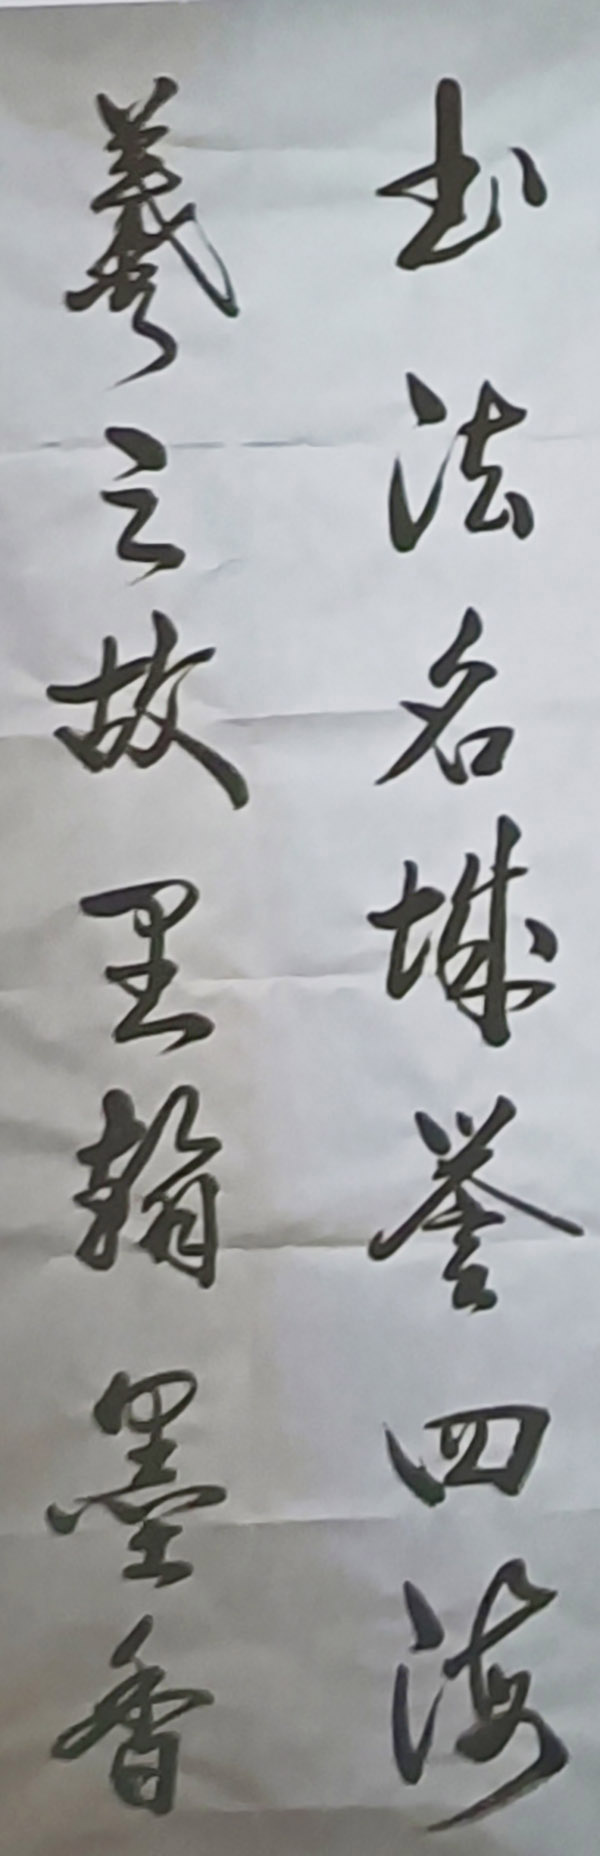 书法名城誉四海
羲之故里翰墨香